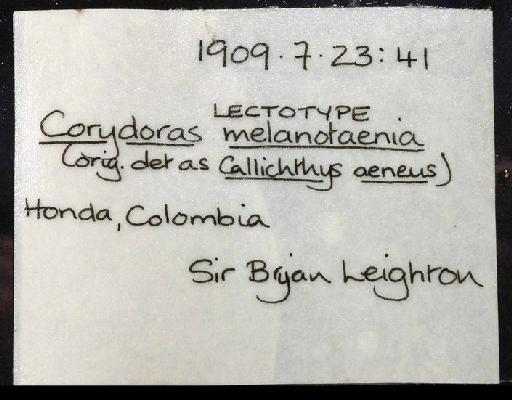 1909.7.23:41
LECTOTYPE
Corydoras melanotaenia
(orig. det as Callichthys aeneus)
Honda, Colombia
Sir Bryan Leighton